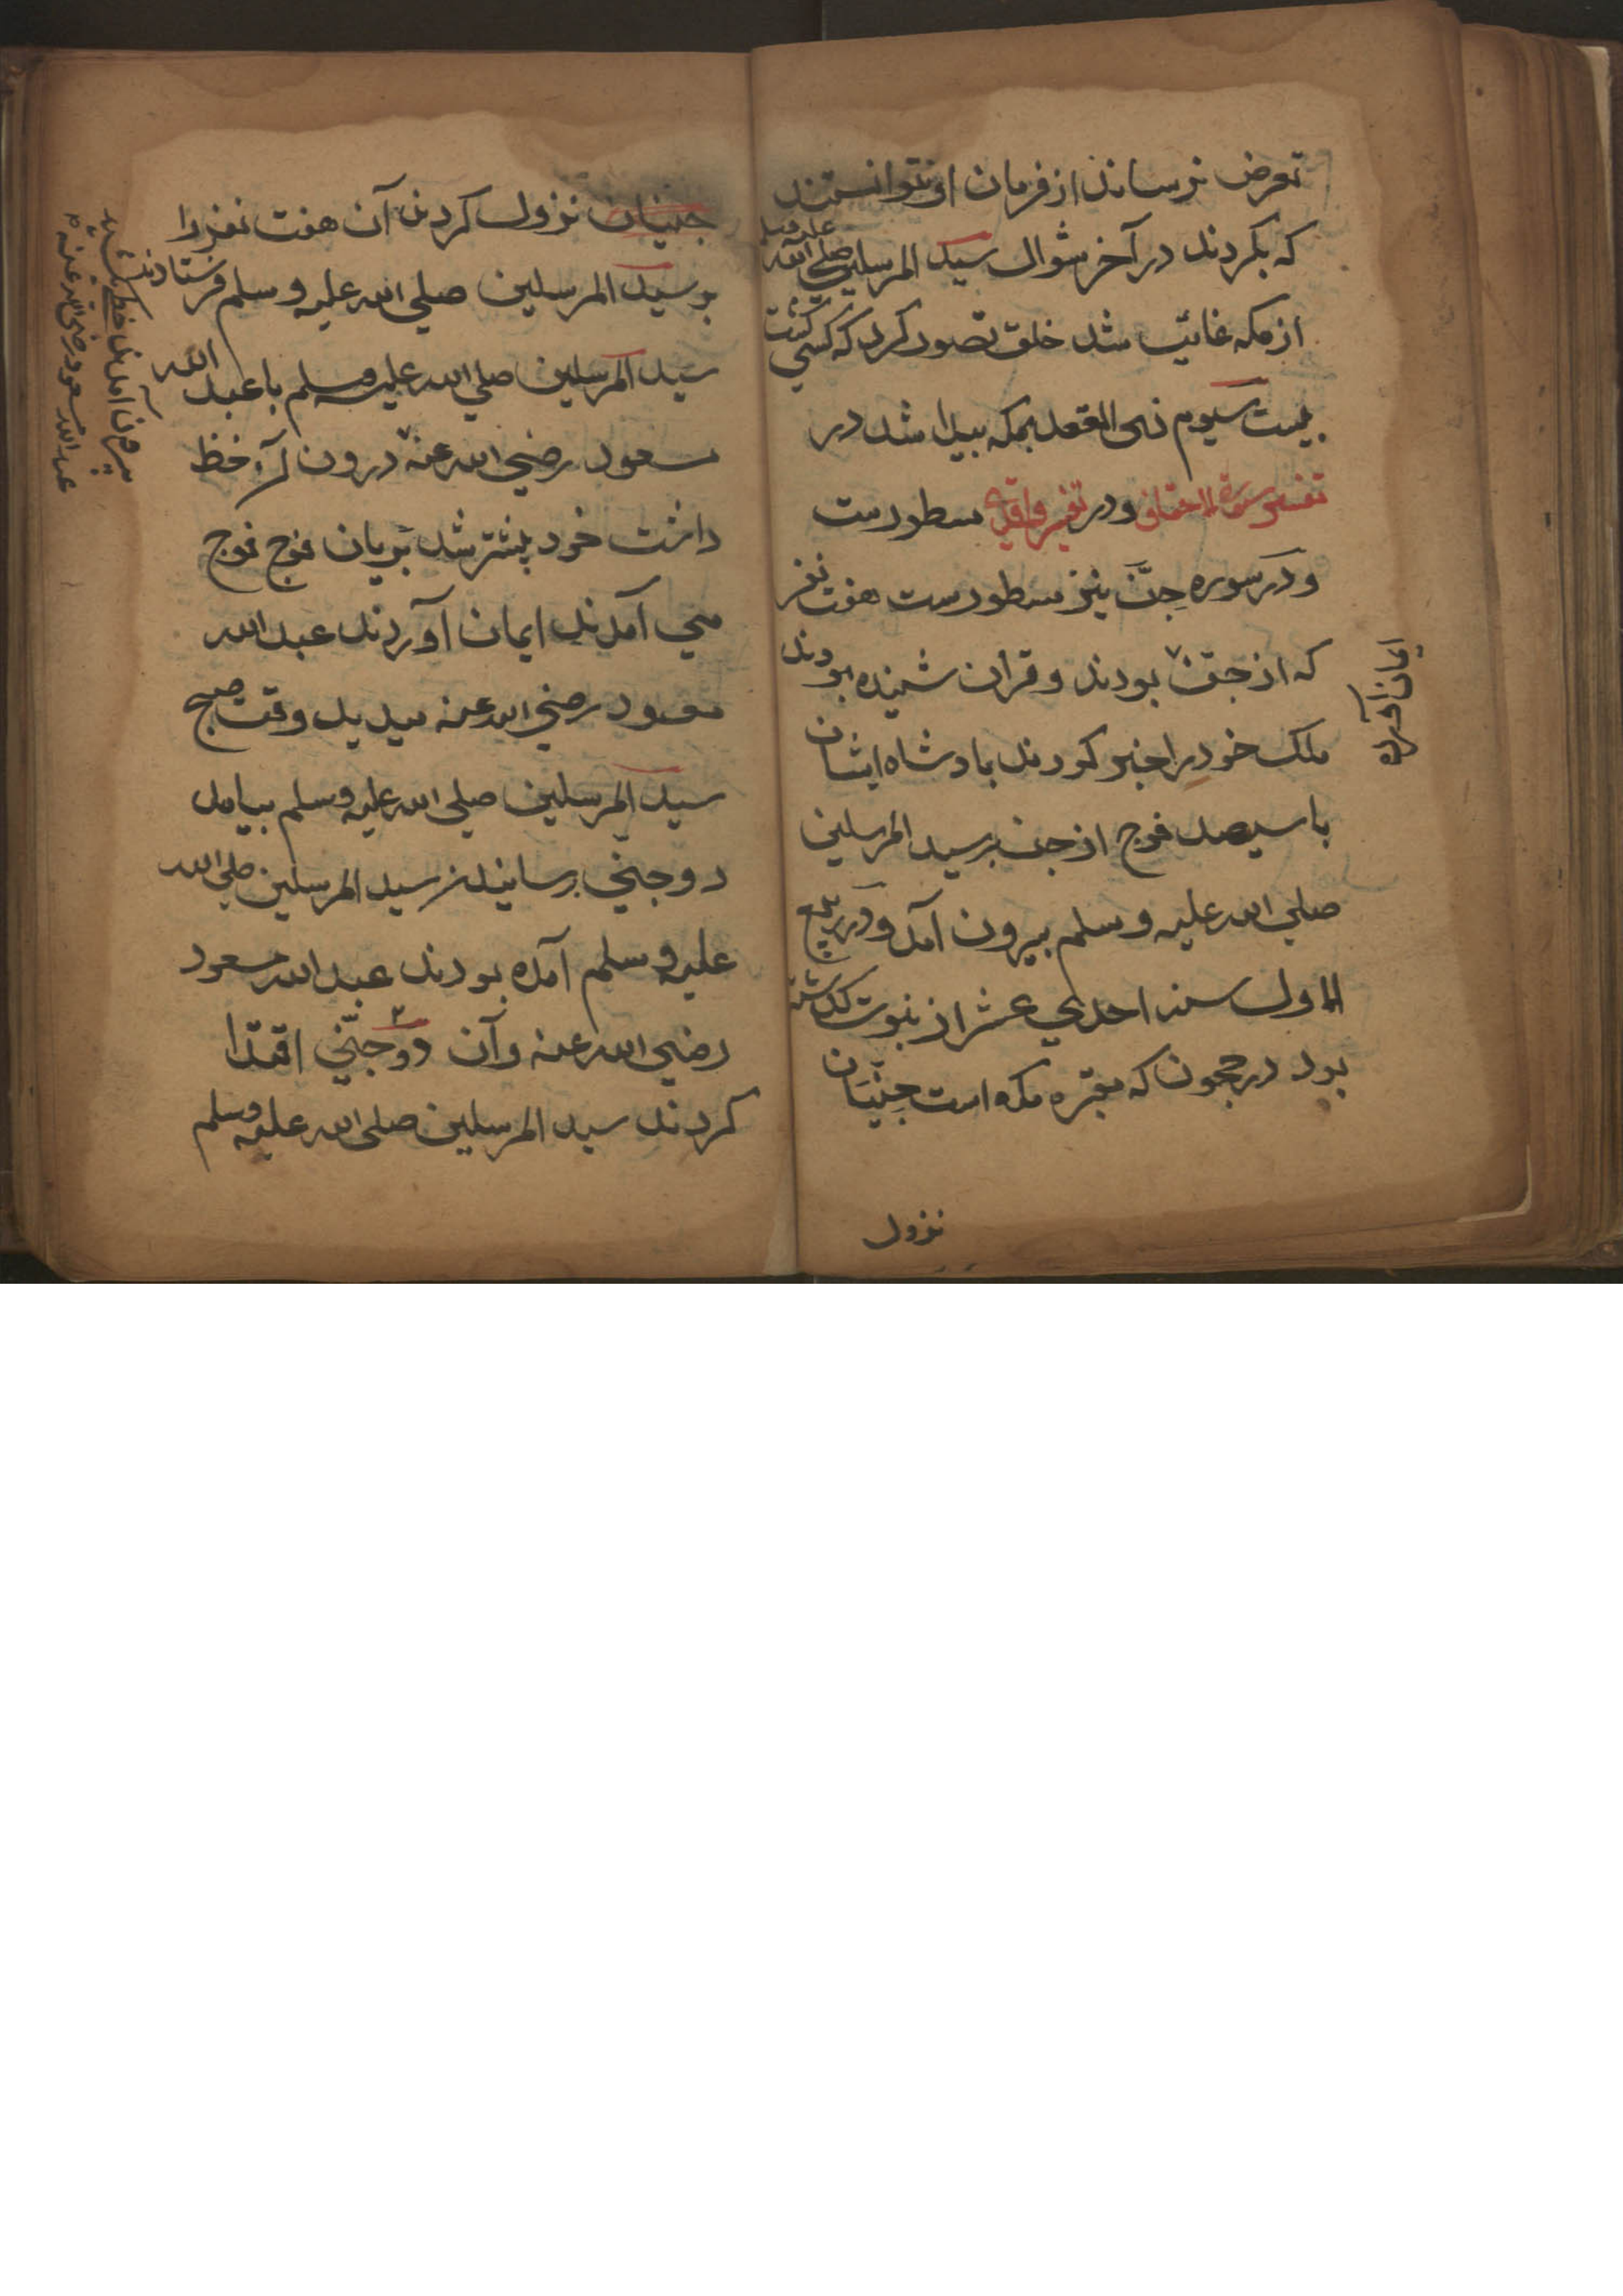 تعرض نرسانند از فرمان او نتوانستند
که بکردند در آخر شوال سید المرسلین صلی الله علیه وسلم
از مکه غائب شد خلق تصور کرد که کسی کشت
بیست سیوم ذی القعد بمکه پیدا شد در
تفسیر سورة الاحقاف و در تفسیر سطورست
و در سوره جن نیز سطورست هفت نفر
که از جن بودند و قران شنیده بودند
ایمان آورده
ملک خود را خبر کردند بادشاه ایشان
با سیصد فوج از جن بر سید المرسلین
صلی الله علیه وسلم بیرون آمد و در ربیع
الاول سنه احدی عشر از نبوت گذشته
بود در حجون که مقبره مکه است جنّیان
نزول
جنیان نزول کردند آن هفت نفر را
بر سید المرسلین صلی الله علیه وسلم فرستادند
سید المرسلین صلی الله علیه وسلم با عبد الله
مسعود رضی الله عنه درون آن خط
داشت خود بیشتر شد پریان فوج فوج
می آمدند ایمان آوردند عبد الله
مسعود رضی الله عنه میدید وقت صبح
سید المرسلین صلی الله علیه وسلم بیامد
دو جنی برسانیدن سید المرسلین صلی الله
علیه وسلم آمده بودند عبد الله مسعود
رضی الله عنه و آن دو جنّی اقتدا
کردند سید المرسلین صلی الله علیه وسلم
بیرون آمدند خط کشید
عبد الله مسعود رضی الله عنه